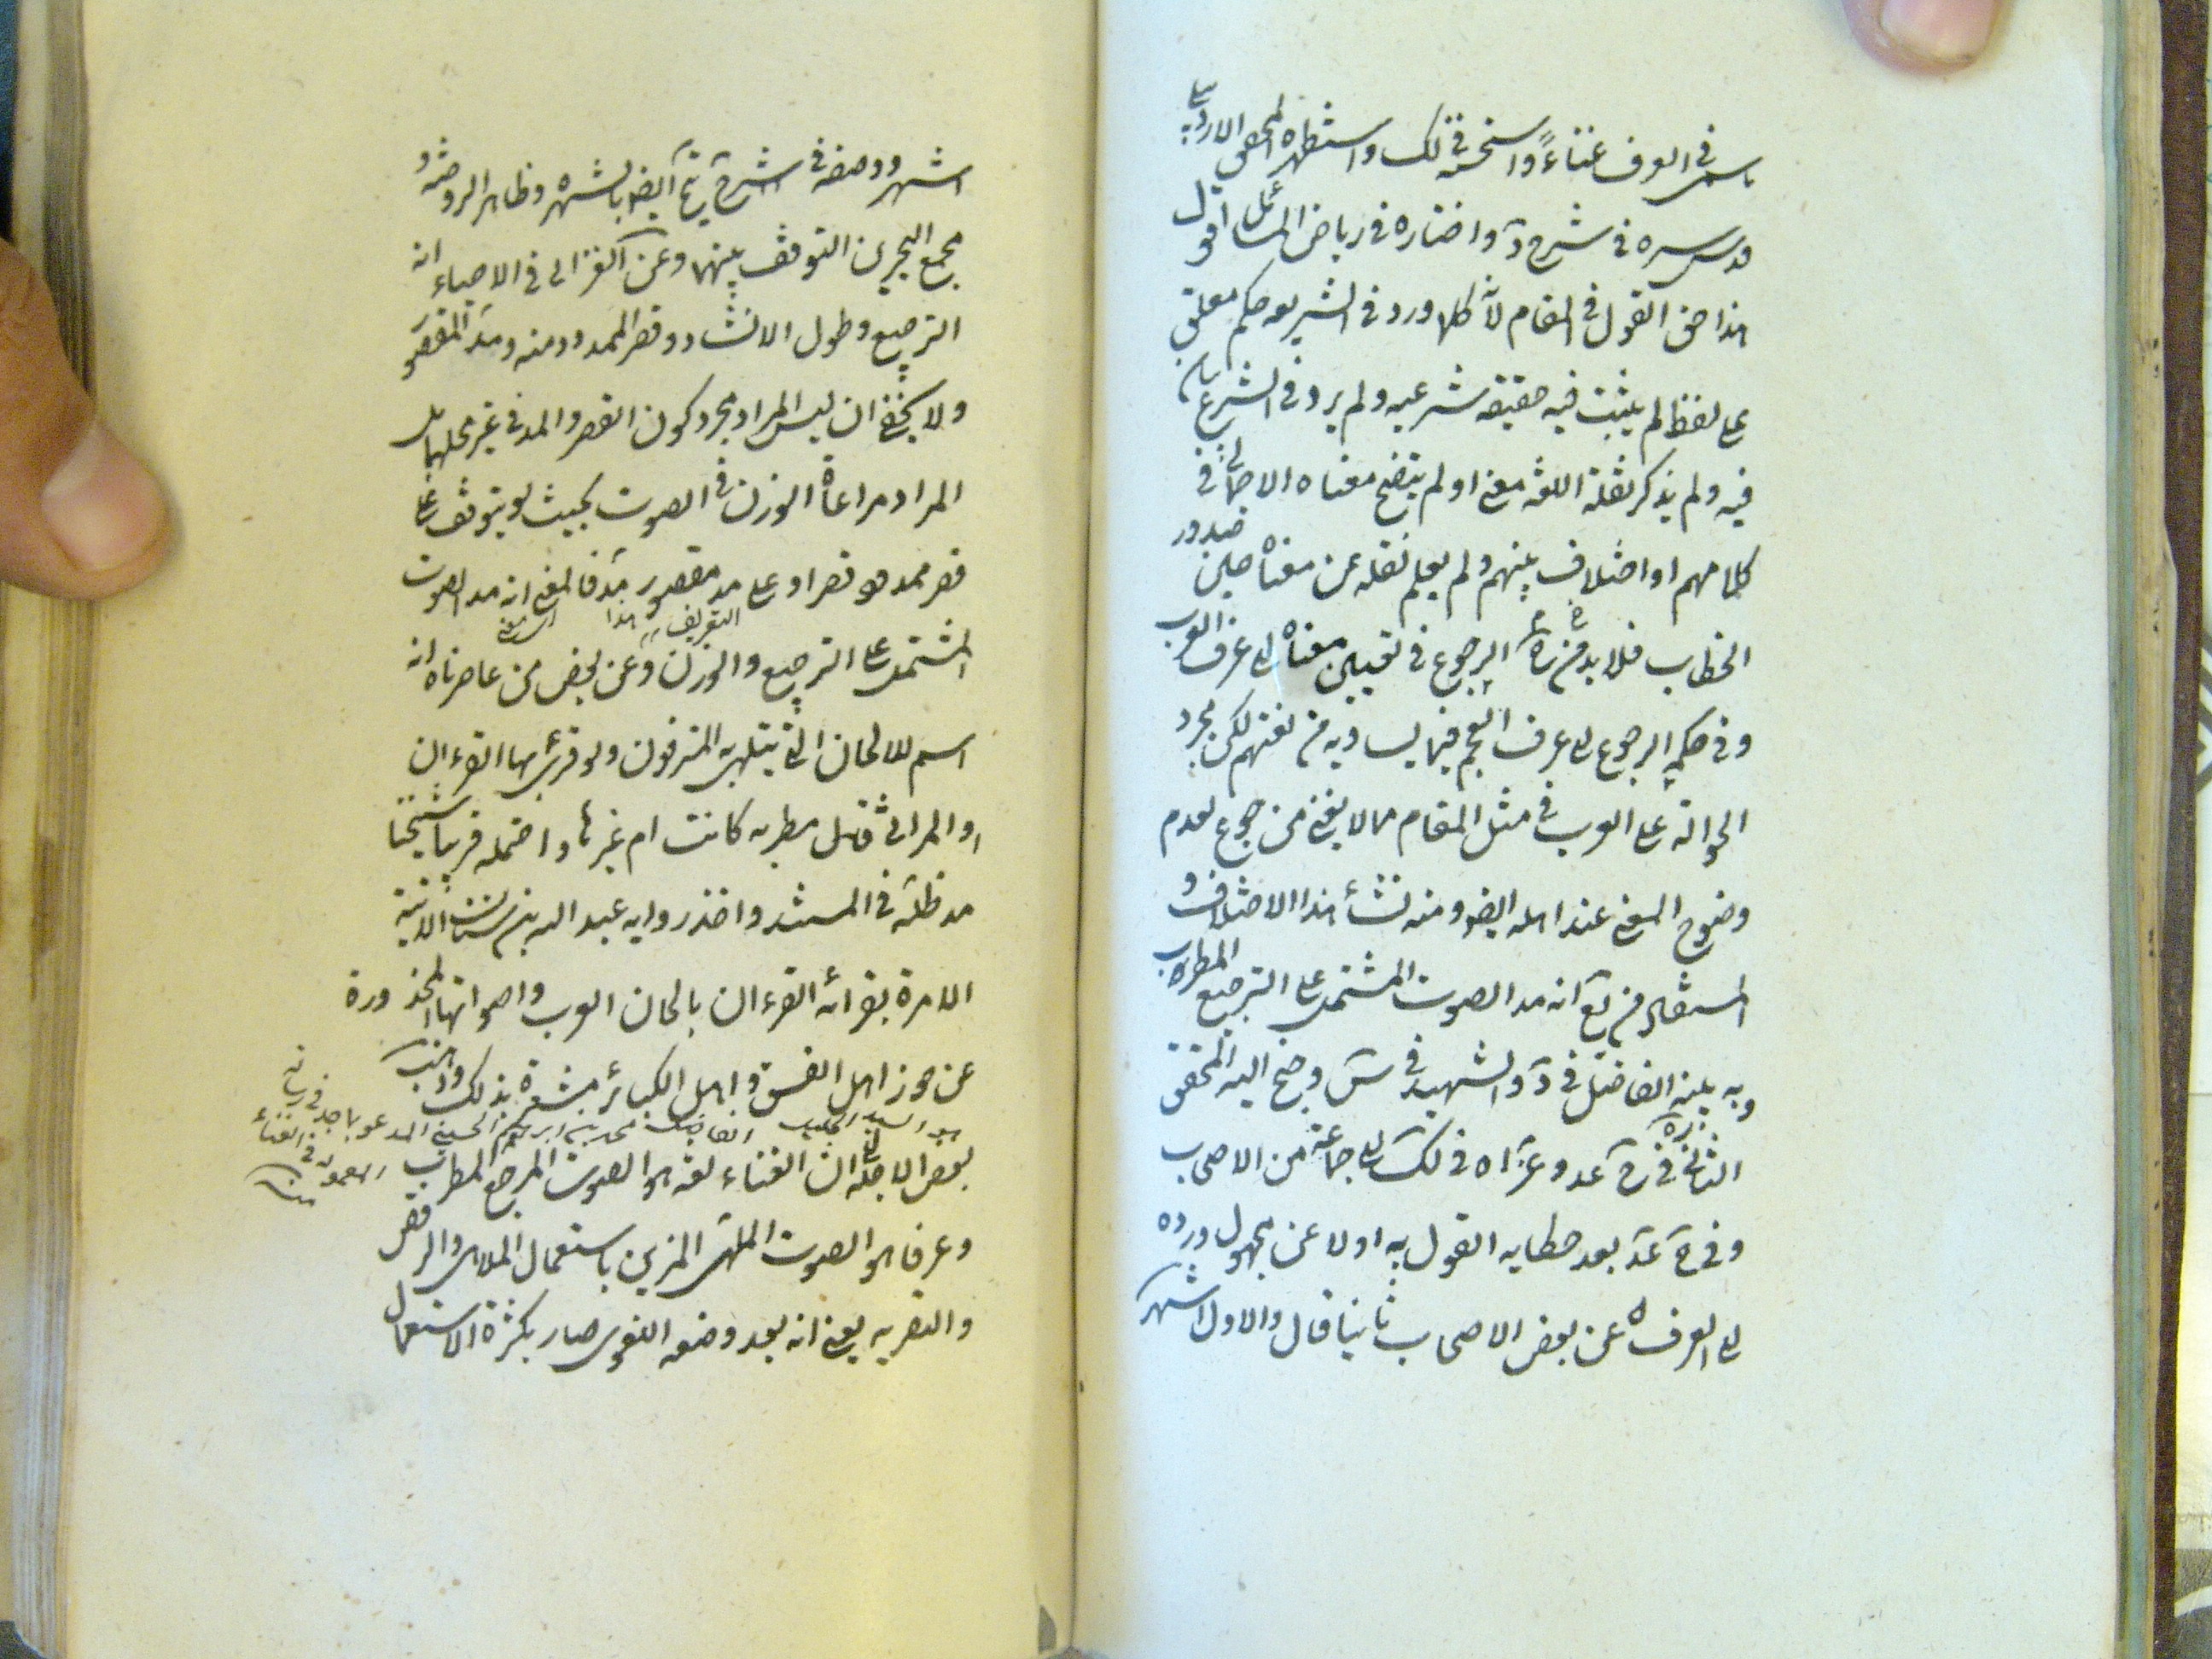 يسمى في العرف غناءً واستحسنه في لك واستظهره المحقق الاردبيلي
قدس سره في شرح د واختاره في رياض المسائل اقول
هذا حق القول في المقام لان كلما ورد في الشريعه حكم معلق
على لفظ لم يثبت فيه حقيقه شرعيه ولم يرد في الشرع بيان
فيه ولم يذكر نقلة اللغة معنى او لم يتضح معناه الاصلي في
كلامهم او اختلاف بينهم ولم يعلم نقله عن معناه حين صدور
الخطاب فلا بد من الرجوع في تعيين معناه الى عرف العرب
وفي حكمه الرجوع الى عرف العجم فيما يساويه من لغتهم لكن مجرد
الحوالة على العرب في مثل المقام مما لا يغنى من جوع لعدم
وضوح المعنى عند اهله ايضا ومنه نشأ هذا الاختلاف و
المستفاد من يع انه مد الصوت المشتمل على الترجيع المطرب
وبه الفاضل في د والشهيد في س وجنح اليه المحقق
الثاني في ح عد وعزاه في لك الى جماعة من الاصحاب
وفي ح عد بعد حكايه القول به اولا عن مجهول ورده
الى العرف عن بعض الاصحاب ثانيا قال والاول اشهر
اشهر ووصفه في شرح يع ايضا بالشهره وظاهر الروضة و
مجمع البحرين التوقف بينهما وعن الغزالي في الاحياء انه
الترجيع وطول الانشاد وقصر الممدود منه ومد المقصور
ولا يخفى ان ليس المراد مجرد كون القصر والمد في غير محلهما بل
المراد مراعاة الوزن في الصوت بحيث لو يتوقف على
قصر ممدود قصر او على مد مقصور مد فالمعنى انه مد الصوت
المشتمل على الترجيع والوزن وعن بعض من عاصرناه انه
اسم للالحان التي يتلهى به المترفون ولو قرئ بها القرءان
او المراثي قال مطربه كانت ام غيرها واحتمله قريبا شيخنا
مد ظله في المستند واخذ روايه عبد الله بن سنان الاتية
الامرة بقرائة القرءان بالحان العرب واصواتها المحذورة
عن حوز اهل الفسق واهل الكبائر مشعرة بذلك وذهب
هو السيد الجليل الفاضل محمد بن ابرهيم الحسيني المدعو بماجد في رسالته
المعموله في الغناء
منه
بعض الاجلة الى ان الغناء لغة هو الصوت المرجع المطرب
وعرفا هو الصوت الملهى المزين باستعمال الملاهى والرقص
والتصديه يعنى انه بعد وضعه اللغوى صار بكثرة الاستعمال